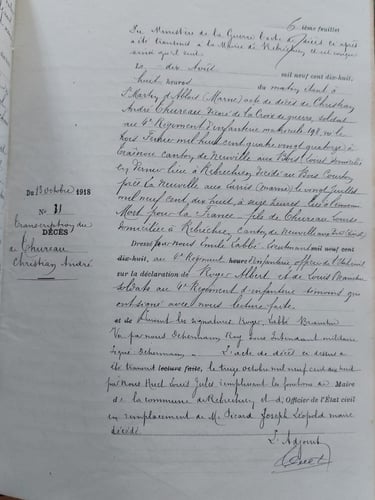 6 ième feuillet
Du Ministère de la Guerre l'acte de décès ci après
a été transmis à la Mairie de Rebréchien et est conçu
ainsi qu'il suit
Le dix Août mil neuf cent dix-huit,
huit heures du matin étant à
St Martin d'Ablois (Marne) acte de décès de Christian
André Thureau décoré de la Croix de guerre, soldat
au 4e Régiment d'infanterie matricule né le
trois Février mil huit cent quatre vingt quatorze à
Traînou canton de Neuville aux Bois Loiret domicilié
en dernier lieu à Rebréchien, décédé au Bois Courton
près La Neuville aux Larris (Marne) le vingt Juillet
mil neuf cent dix huit, à seize heures
Mort pour la France fils de Thureau
domiciliée à Rebréchien canton de Neuville aux Bois (Loiret)
Dressé par nous Emile Labbé Lieutenant mil neuf cent
dix-huit, au 4e Régiment heure d'infanterie, officier de l'Etat civil
sur la déclaration de Roger Albert et de Louis
soldats au 4e Régiment d'infanterie témoins qui
ont signé avec nous lecture faite
et de Suivent les signatures Roger, Labbé
Vu par nous Sous Intendant militaire
Signé L'acte de décès ci dessus a
été transcrit lecture faite, le treize octobre mil neuf cent dix huit
par Nous Huet Louis Jules remplissant les fonctions de Maire
de la commune de Rebréchien et d'Officier de l'État civil
en remplacement de M. Picard Joseph Léopold maire
décédé
L'Adjoint
Huet
Du 13 Octobre 1918
No 11
transcription du
DÉCÈS
de Thureau
Christian André